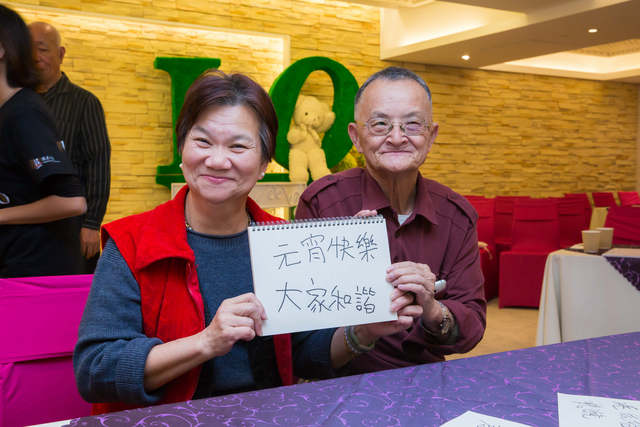 元宵快樂
大家和諧